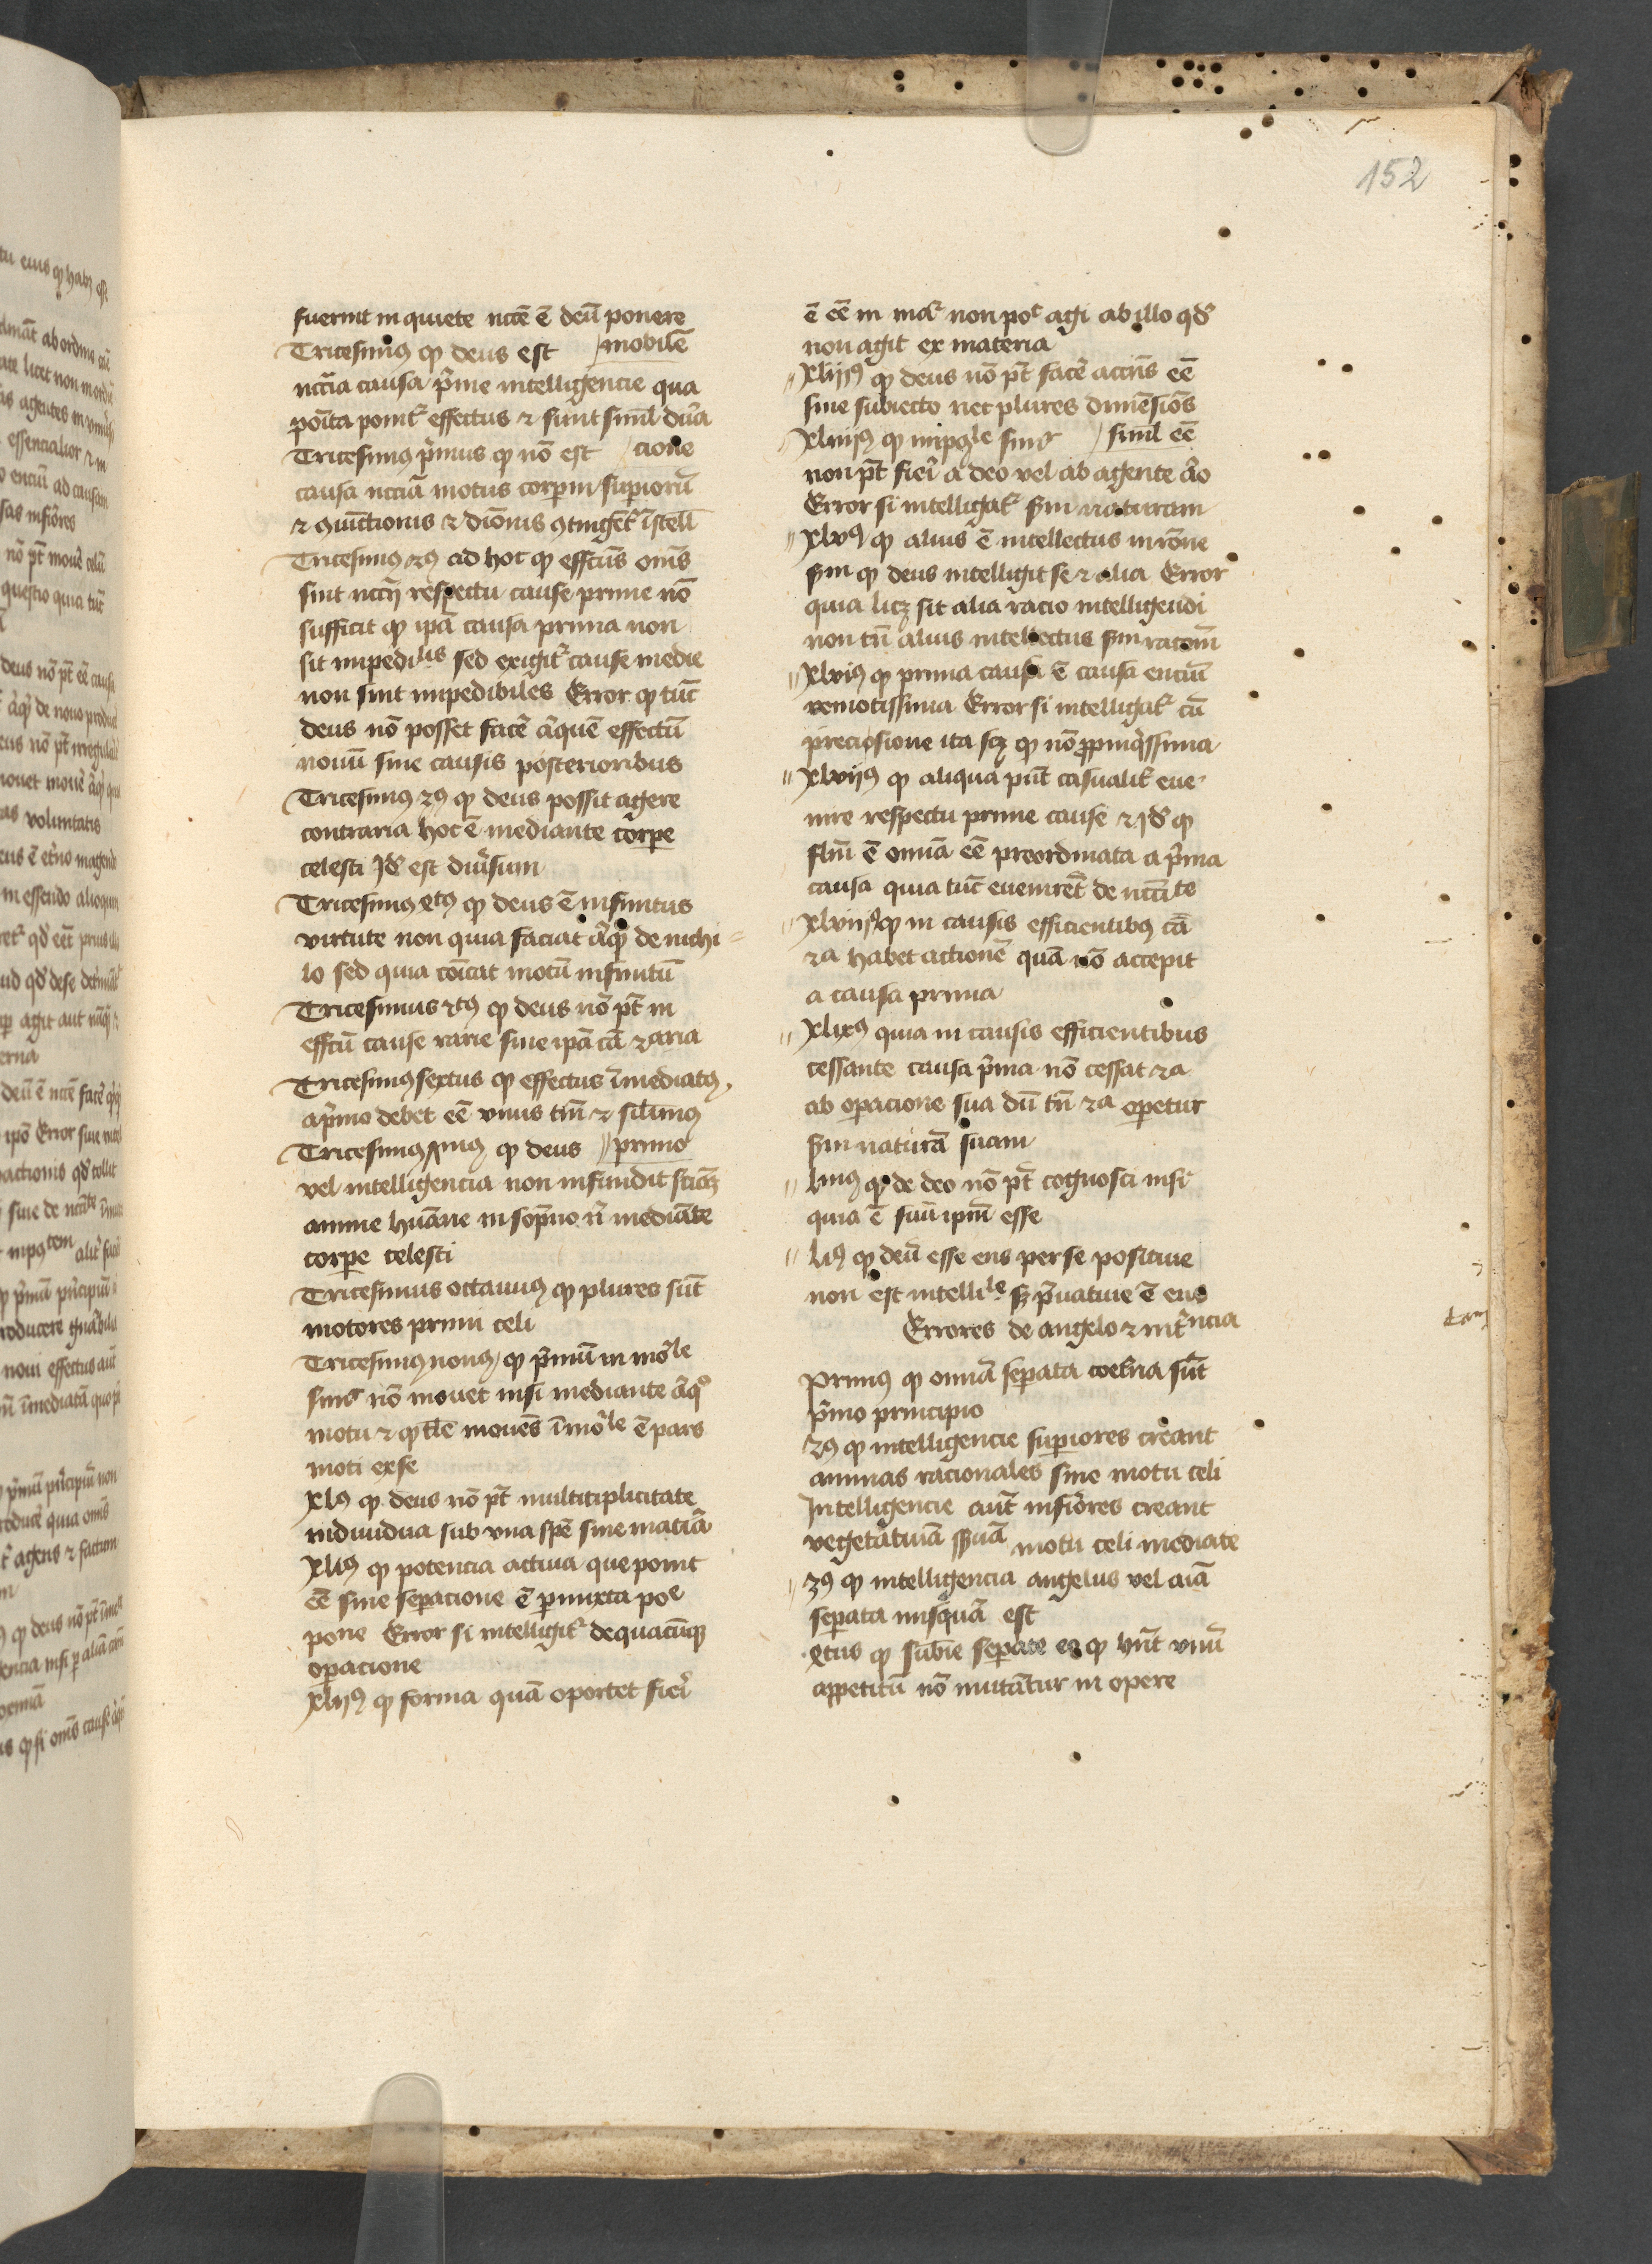 152
fuerint in quiete nccē ē deū ponere
Tricesimꝰ ꝙ deus est /mobilē
nccīa causa p̄me intelligencie qua
poīta ponit᷑ effectus ⁊ sunt simĺ dur̄a
Tricesimꝰ p̄mus ꝙ nō est /cione
causa nccīa motus corꝑm suꝑiorū
⁊ ꝯiūctionis ⁊ diōnis ꝯtingēt᷑ ī stellꝭ
Tricesimꝰ 2ꝰ ad hoc ꝙ effcūs om̄s
sint nccrij respectu cause prime nō
sufficit ꝙ ipā causa prima non
sit impedilis sed exigit᷑ cause medie
non sint impedibiles Error ꝙ tūc
deus nō posset facē aͥquē effectū
nouū sine causis posterioribus
Tricesimꝰ 3ꝰ ꝙ deus possit agere
contraria hoc ē mediante corꝑe
celesti qd̄ est diūsum
Tricesimꝰ 4tꝰ ꝙ deus ē infinitus
virtute non quia faciat aͥqͥd de nichi-
lo sed quia cōicat motū infinitū
Tricesimus 5tꝰ ꝙ deus nō pt̄ in
effcū cause rarie sine ipā cā 2aria
Tricesimꝰ sextus ꝙ effectus īmediatꝰ
a p̄mo debet eē vnus tm̄ ⁊ sil̄imꝰ
Tricesimꝰ 7imꝰ ꝙ deus //primo
vel intelligencia non infundit sciēcz
anime hūane in sopno n̄ mediāte
corꝑe celesti
Tricesimus octauus ꝙ plures sūt
motores primi celi
Tricesimꝰ nonꝰ ꝙ p̄mū in mōle
simꝰ nō mouet nisi mediante aͥqͦ
motu ⁊ ꝙ tāle mouēs īmōle ē pars
moti ex se
xlꝰ ꝙ deus nō pt̄ multitiplicitate
indiuidua sub vna spē sine mat̄ia
xliꝰ ꝙ potencia actiua que ponit
eē sine seꝑacione ē ꝑmixta poe
pone Error si intelligit᷑ de quacūqꝫ
oꝑacione
xlijꝰ ꝙ forma quā oportet fieri
ē eē in mat᷑ non pot᷑ agi ab illo qd̄
non agit ex materia
xliijꝰ ꝙ deus nō pt̄ facē accn̄s eē
sine subiecto nec plures dimēsiōs
xliiijꝰ ꝙ impoꝰle simꝰ /simĺ eē
non pt̄ fieri a deo vel ab agente aͥo
Error si intelligat᷑ ẜm naturam
xlvꝰ ꝙ alius ē intellectus in rōne
ẜm ꝙ deus intelligit se ⁊ alia Error
quia licꝫ sit alia racio intelligendi
non tn̄ alius intellectus ẜm racōm
xlviꝰ ꝙ prima causa ē causa enciū
remotissima Error si intelligat᷑ cū
preciosione ita scꝫ ꝙ nō ꝓpinq̄ssima
xlvijꝰ ꝙ aliqua pn̄t casualit᷑ eue-
nire respectu prime cause ⁊ qd̄ ꝙ
flm̄ ē omīa eē preordinata a p̄ma
causa quia tūc euenirēt de nccīte
xlviijꝰ ꝙ in causis efficientibꝰ cā
2a habet actionē quā nō accepit
a causa prima
xlixꝰ quia in causis efficientibus
cessante causa p̄ma nō cessat 2a
ab oꝑacione sua dū tn̄ 2a operetur
ẜm naturā suam
limꝰ ꝙ de deo nō pt̄ cognosci nisi
quia ē suū ipm̄ esse
liꝰ ꝙ deū esse ens per se positiue
non est intellile sꝫ p̄uatiue ē ens
Errores de angelo ⁊ int̄ncia
Primꝰ ꝙ omīa seꝑata coet̄na sūt
p̄mo principio
2ꝰ ꝙ intelligencie suꝑiores creant
animas racionales sine motu celi
Intelligencie aut̄ inferiores creant
vegetatiuā ssuā motu celi mediate
3ꝰ ꝙ intelligencia angelus vel aīa
seꝑata nusquā est
4tus ꝙ sub̄ie seꝑate eo ꝙ hn̄t vnū
appetitū nō mutātur in opere